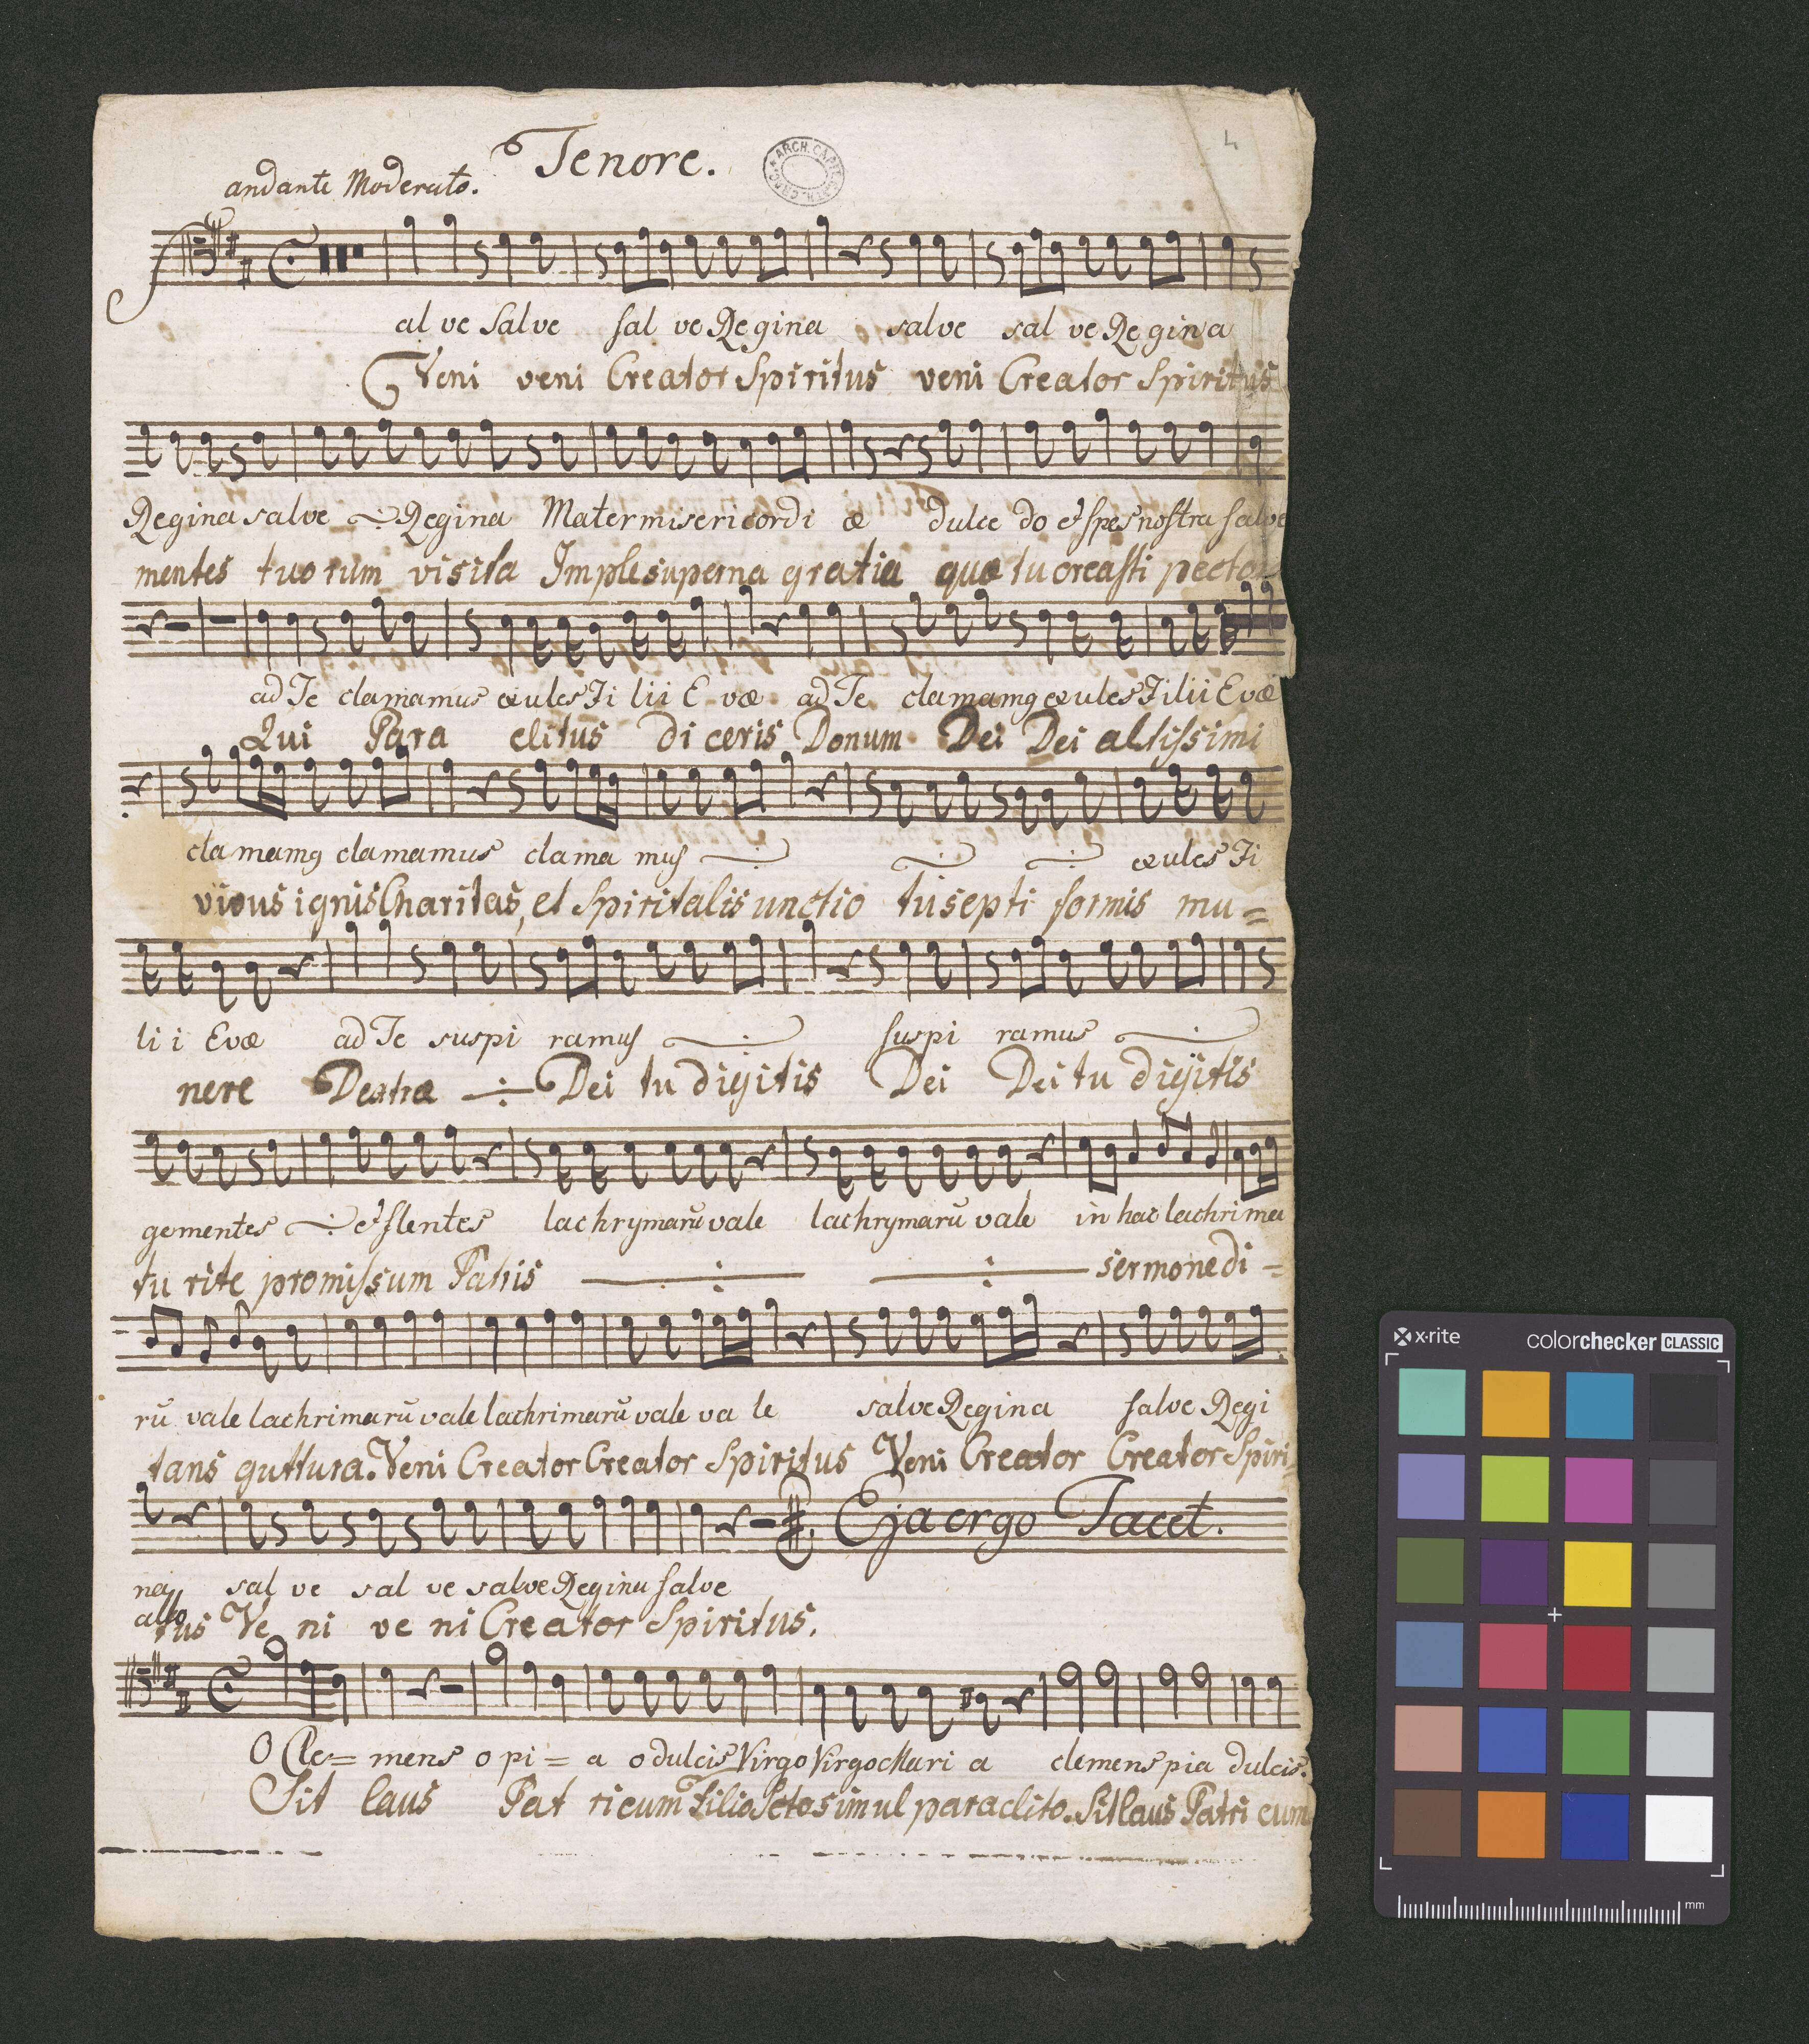 Tenore.
4
ARCH. CAP
andante Moderato.
S
al ve Salve sal ve Regina salve sal ve Regina
Veni veni Creator Spiritus veni Creator Spiritus
Regina salve ÷ Regina Mater misericordi æ dulce do et spes nostra salve
mentes tuorum visita Imple superna gratia quæ tu creasti pecto
ad Te clamamus exules Fi lii E væ ad Te clamamg exules Filii Evæ
Qui Para clitus di ceris Donum Dei Dei altissimi
cla mamg clamamus clama mus ÷ ÷ ÷ exules Fi
vivus ignis Charitas, et Spiritalis unctio tu septi formis mu=
li i Evæ ad Te suspi ramus ÷ suspi ramus ÷
nere Dextræ ÷ Dei tu digitis Dei Dei tu digitis
gementes ÷ et flentes lachrymarũ vale lachrymarũ vale in hac lachrima
tu rite promissum Patris ÷ ÷ sermone di=
rũ vale lachrimarũ vale lachrimarũ vale va le salve Regina salve Regi
tans guttura. Veni Creator Creator Spiritus Veni Creator Creator Spiri
Eja ergo Tacet.
na sal ve sal ve salve Regina salve
tus Ve ni ve ni Creator Spiritus.
O Cle= mens o pi= a o dulcis Virgo Virgo Mari a clemens pia dulcis.
Sit laus Pat ri cum Filio Scto simul paraclito. Sit laus Patri cum
x-rite
colorchecker CLASSIC
mm